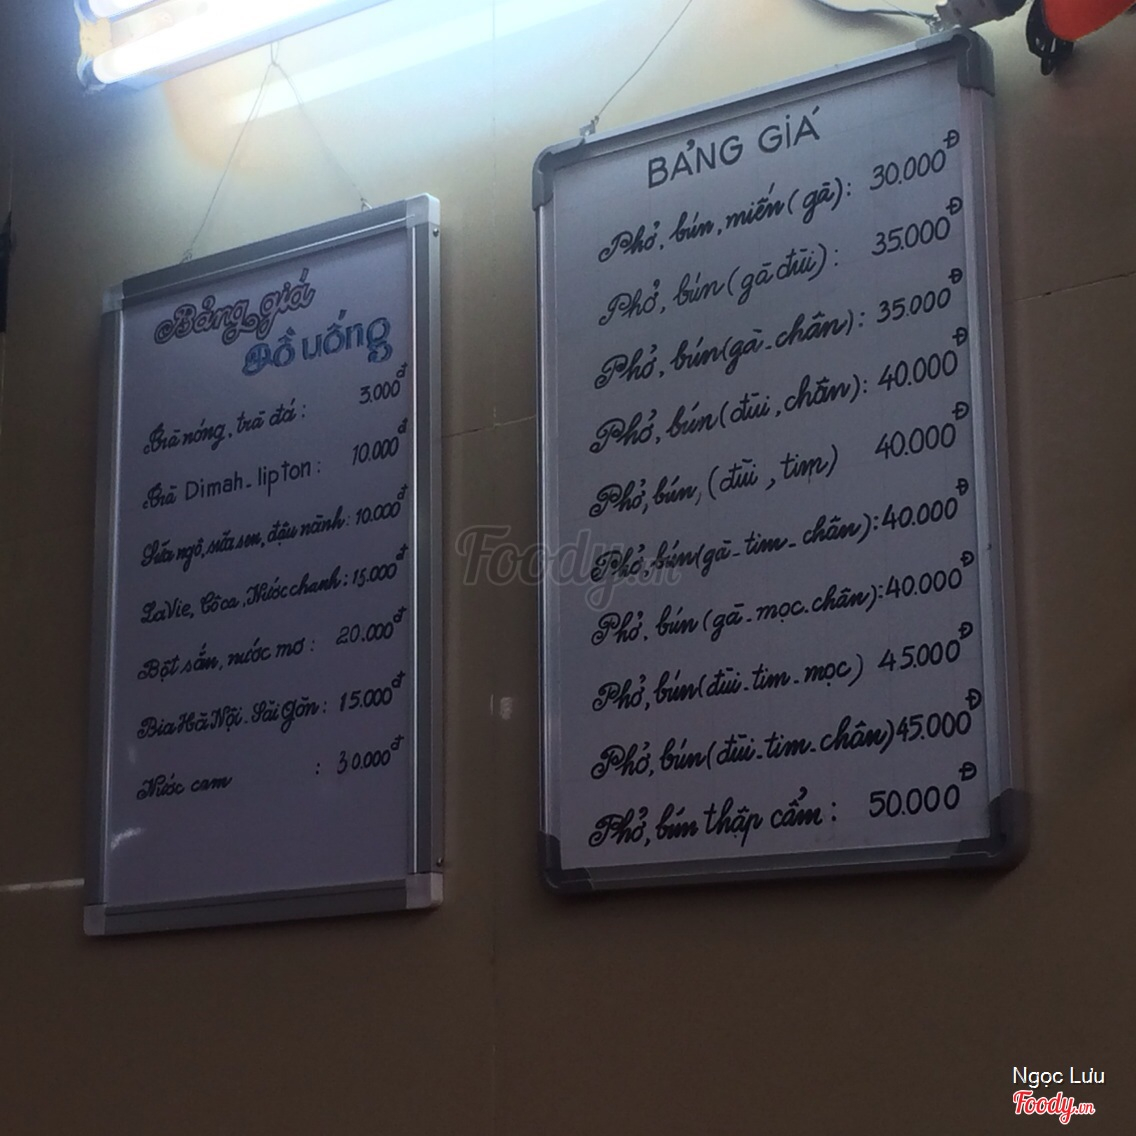 Bảng giá
Đồ uống
Trà nóng, trà đá : 3.000đ
Trà Dimah - lipton : 10.000đ
Sữa ngô, sữa sen, đậu nành : 10.000đ
LaVie, Côca, Nước chanh : 15.000đ
Bột sắn, nước mơ : 20.000đ
Bia Hà Nội - Sài Gòn : 15.000đ
Nước cam : 30.000đ
BẢNG GIÁ
Phở, bún, miến (gà): 30.000Đ
Phở, bún (gà đùi): 35.000Đ
Phở, bún (gà - chân): 35.000Đ
Phở, bún (đùi, chân): 40.000Đ
Phở, bún, (đùi, tim) 40.000Đ
Phở, bún (gà - tim - chân): 40.000Đ
Phở, bún (gà - mọc. chân): 40.000Đ
Phở, bún (đùi - tim - mọc) 45.000Đ
Phở, bún (đùi - tim - chân) 45.000Đ
Phở, bún thập cẩm : 50.000Đ
Foody.vn
Ngọc Lưu
Foody.vn